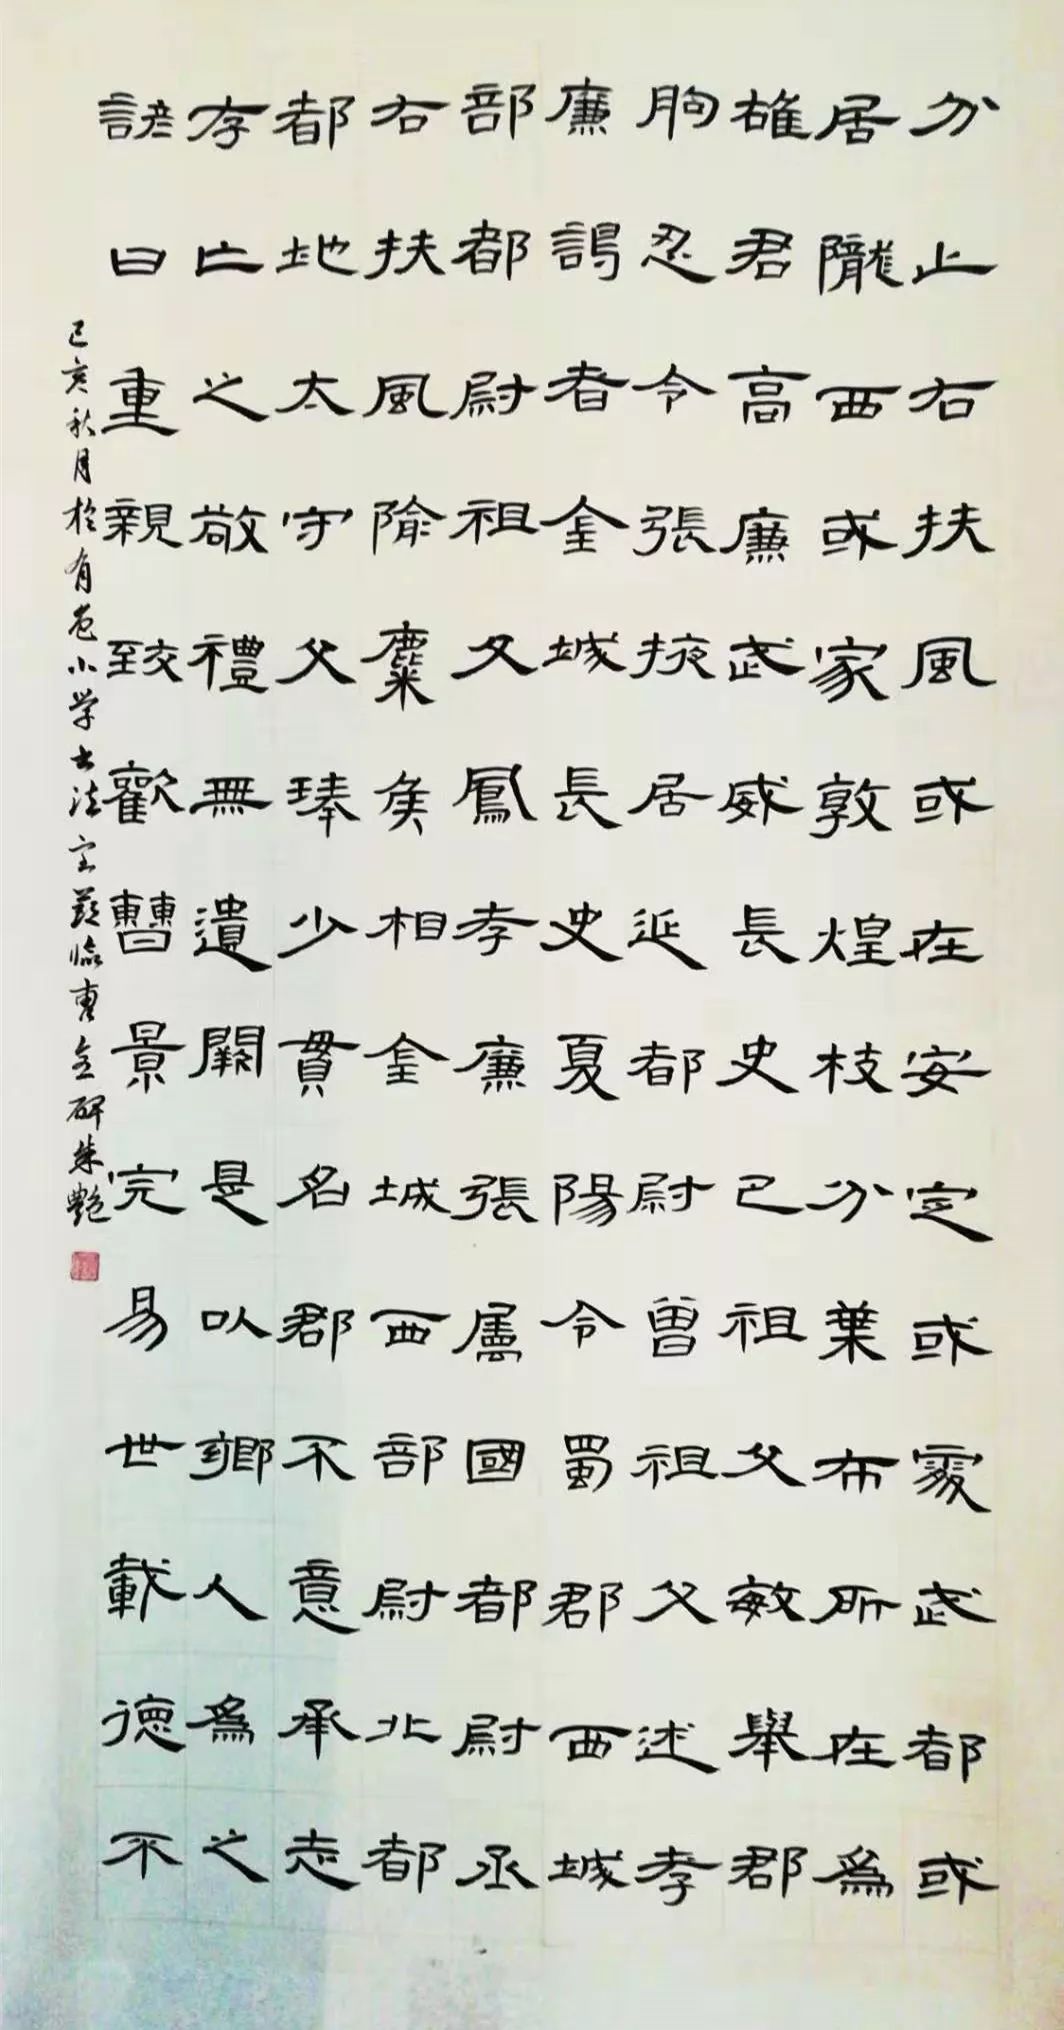 分止右扶風或在安定或處武都或
居隴西或家敦煌枝分葉布所在爲
雄君高廉武威長史已祖父敏舉郡
朐忍令張掖居延都尉曾祖父述孝
廉謁者金城長史夏陽令蜀郡西城
部都尉祖父鳳孝廉張掖屬國都尉丞
右扶風隃麋侯相金城西部尉北都
都地太守父琫少貫名郡不意承志
存亡之敬禮無遺闕是以鄉人爲之
諺曰重親致歡曹景完易世載德不
己亥秋月於有色小学書法室臨曹全碑朱艷